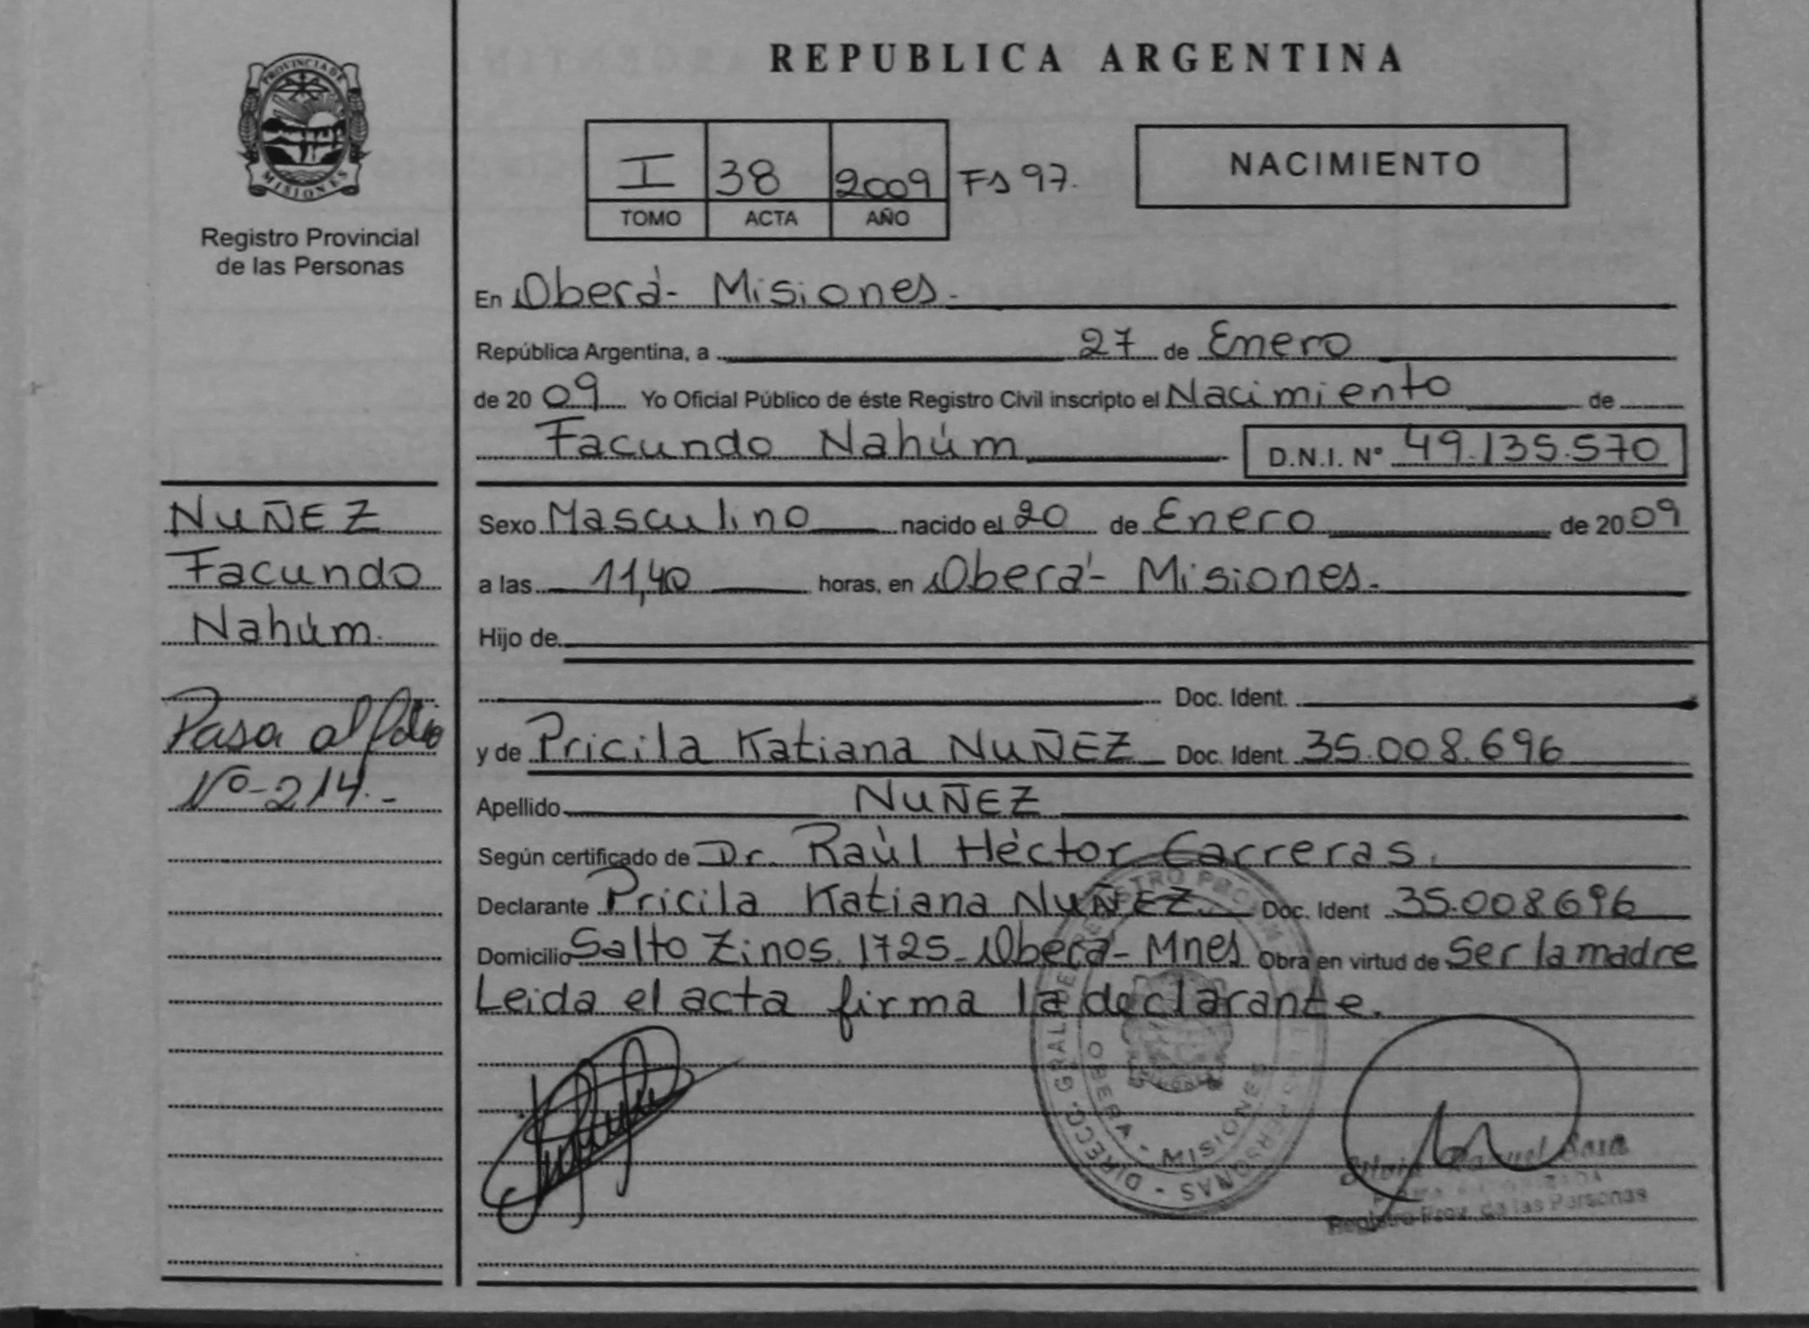 REPUBLICA ARGENTINA
PROVINCIA DE
MISIONES
Registro Provincial
de las Personas
I 38 2009 Fs 97.
TOMO ACTA AÑO
NACIMIENTO
En Oberá- Misiones.
República Argentina, a 27 de Enero
de 2009 Yo Oficial Público de éste Registro Civil inscripto el Nacimiento de
Facundo Nahúm D.N.I. N° 49.135.570
NUÑEZ
Facundo
Nahúm.
Pasa al folio
Nº-214.-
Sexo Masculino nacido el 20 de Enero de 2009
a las 11,40 horas, en Oberá- Misiones.
Hijo de
Doc. Ident.
y de Pricila Katiana NUÑEZ Doc. Ident 35.008.696
Apellido NUÑEZ
Según certificado de Dr. Raúl Héctor Carreras.
Declarante Pricila Katiana NUÑEZ. Doc. Ident 35.008696
Domicilio Salto Zinos 1725- Oberá- Mnes Obra en virtud de Ser la madre
Leida el acta firma la declarante.
DIRECC. GRAL DE REGISTRO PROV. PERSONAS
OBERA - MISIONES
Registro Prov. de las Personas